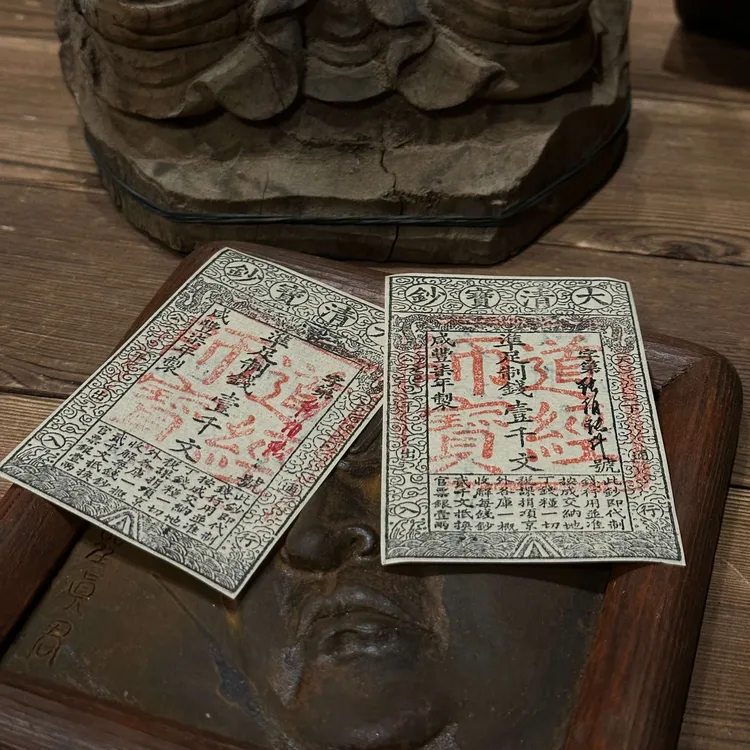 大清寳鈔
字第
號
準足制錢壹千文
咸豐柒年製
道經
此鈔即代制
錢行用並准
按成交納地
丁錢糧一切
稅課捐項京
外各庫一概
收解每錢鈔
貳千文抵換
官票銀壹兩
大清寳鈔
天下通行
字第
號
準足制錢壹千文
咸豐柒年製
道經
此鈔即代制
錢行用並准
按成交納地
丁錢糧一切
稅課捐項京
外各庫一概
收解每錢鈔
貳千文抵換
官票銀壹兩